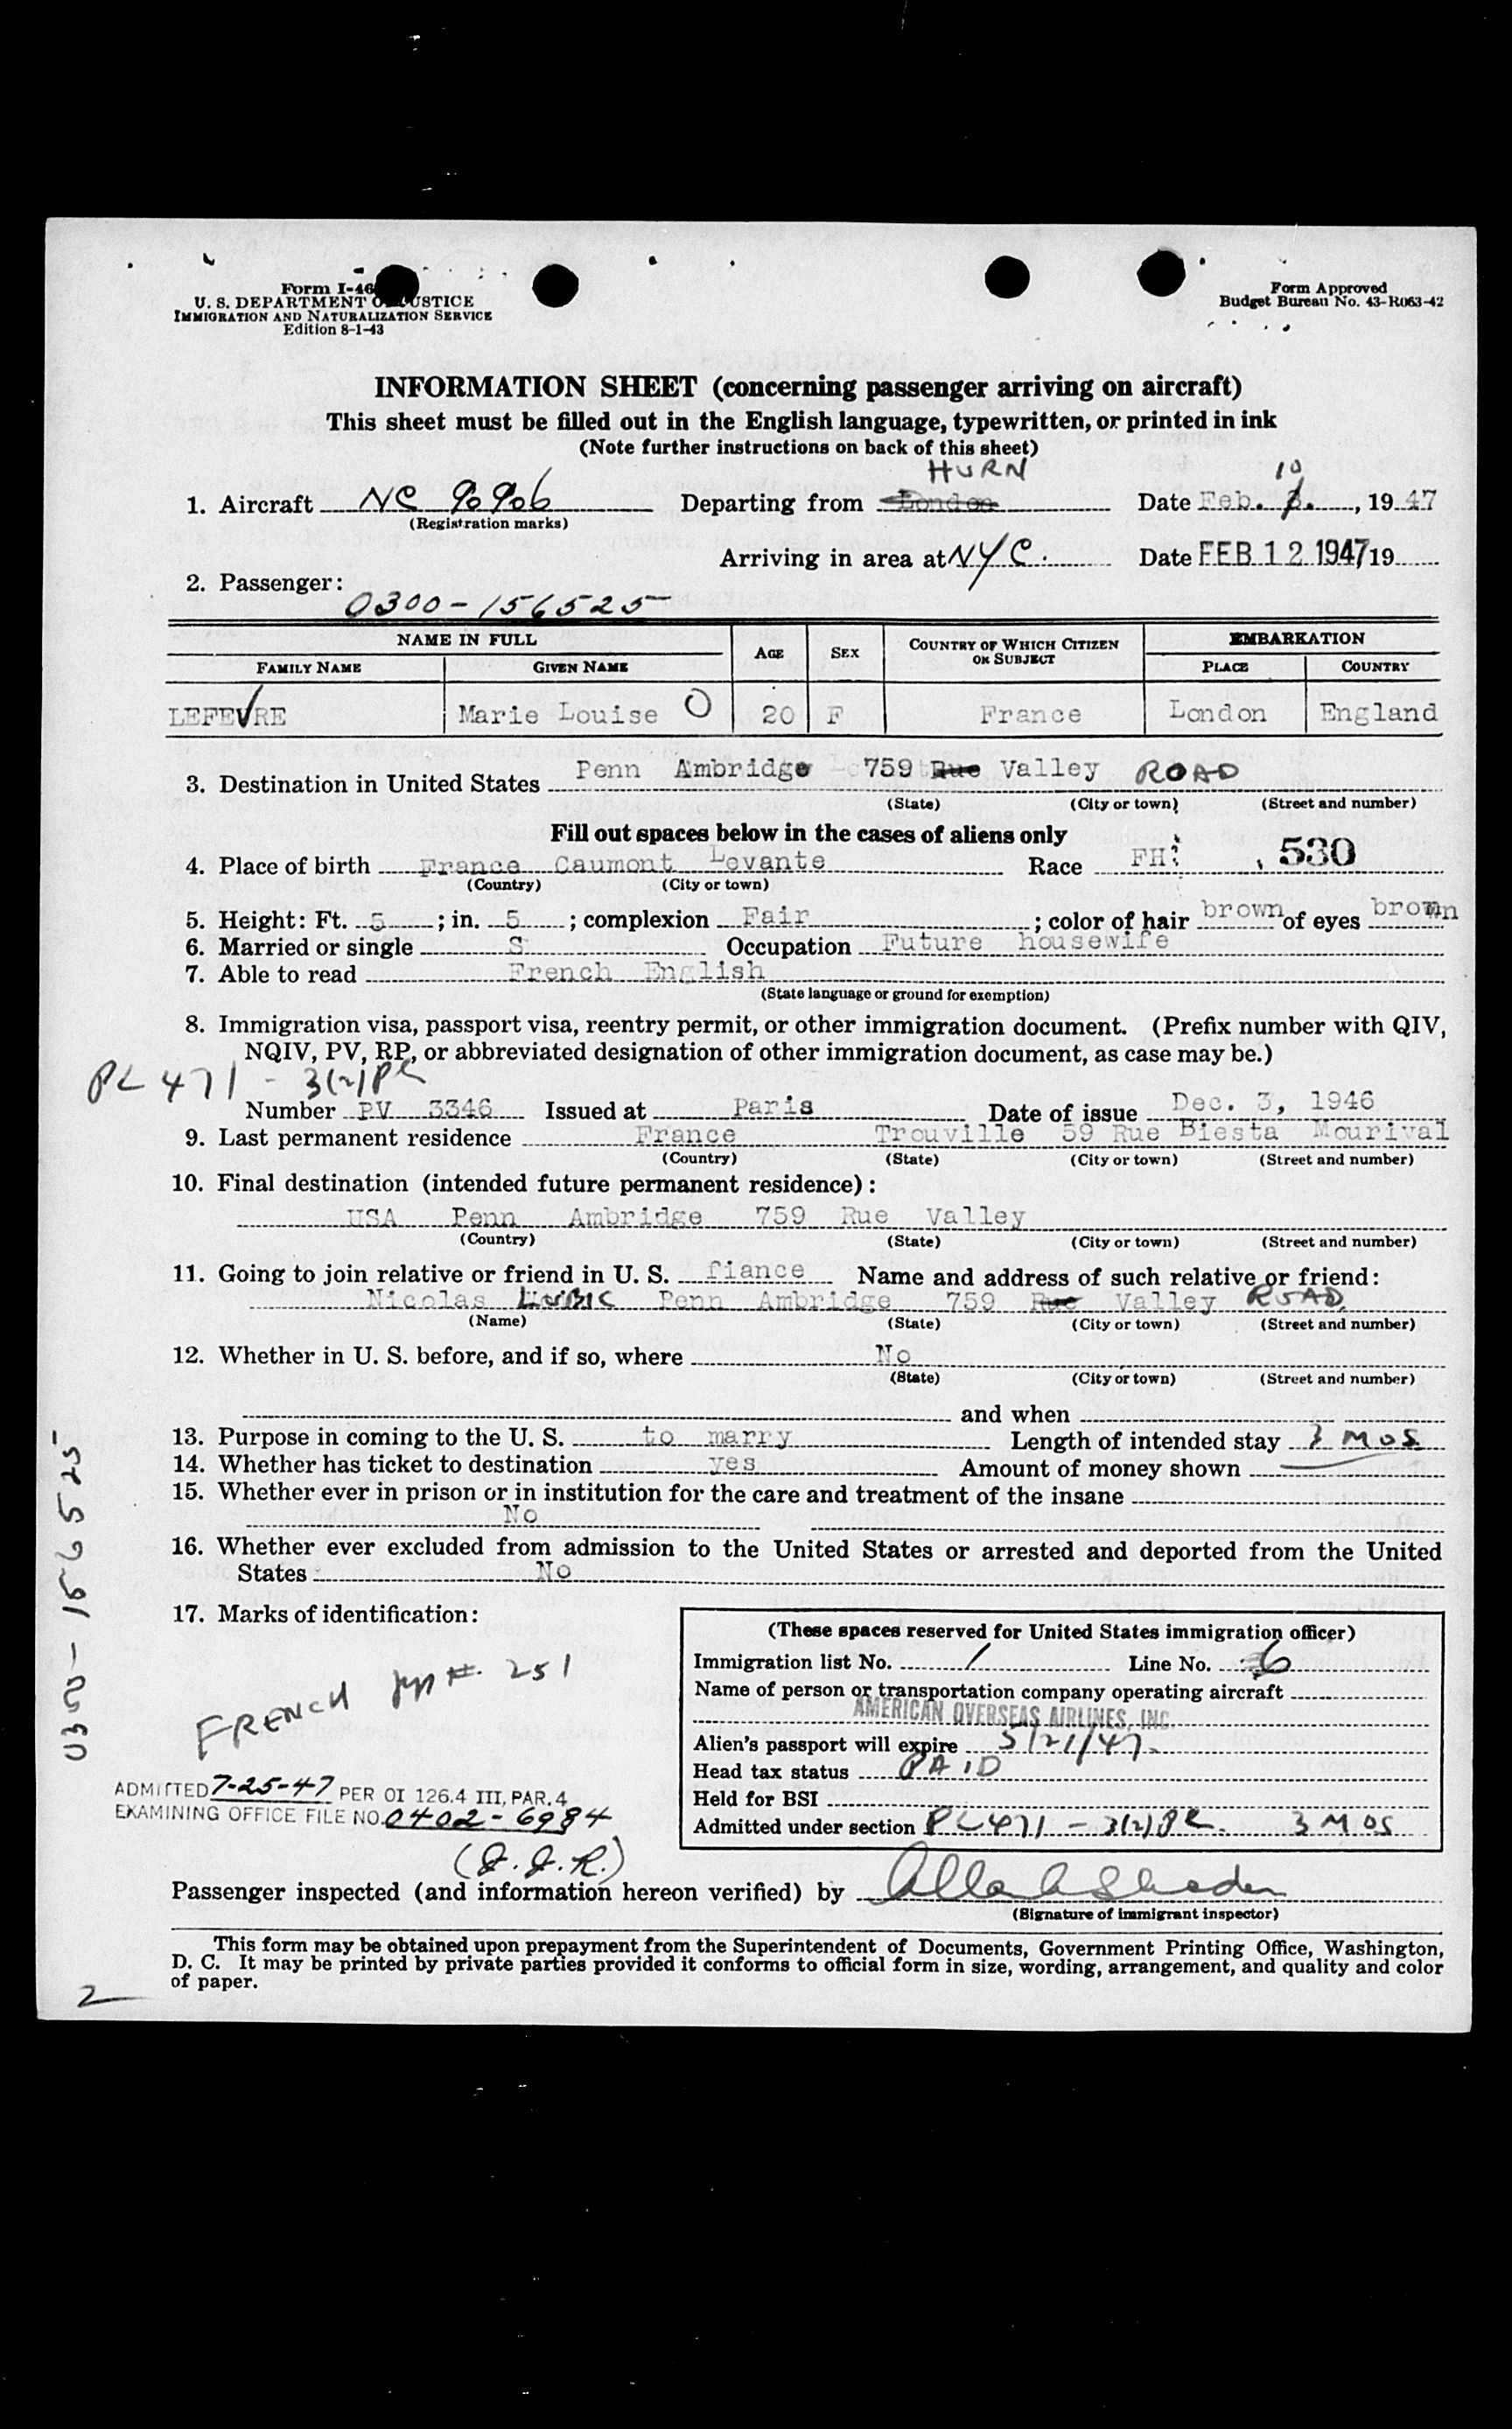 Form I-46
U. S. DEPARTMENT OF JUSTICE
IMMIGRATION AND NATURALIZATION SERVICE
Edition 8-1-43
Form Approved
Budget Bureau No. 43-R063-42
INFORMATION SHEET (concerning passenger arriving on aircraft)
This sheet must be filled out in the English language, typewritten, or printed in ink
(Note further instructions on back of this sheet)
HURN 10
1. Aircraft NC 90906 Departing from London Date Feb. , 1947
(Registration marks)
Arriving in area at NYC. Date FEB 12 1947 19
2. Passenger:
0300-156525
NAME IN FULL AGE SEX COUNTRY OF WHICH CITIZEN OR SUBJECT EMBARKATION
FAMILY NAME GIVEN NAME PLACE COUNTRY
LEFEVRE Marie Louise O 20 F France London England
3. Destination in United States Penn Ambridge 759 Rue Valley ROAD
(State) (City or town) (Street and number)
Fill out spaces below in the cases of aliens only
4. Place of birth France Caumont Levante Race FH 530
(Country) (City or town)
5. Height: Ft. 5; in. 5; complexion Fair; color of hair brown of eyes brown
6. Married or single S Occupation Future housewife
7. Able to read French English
(State language or ground for exemption)
8. Immigration visa, passport visa, reentry permit, or other immigration document. (Prefix number with QIV,
NQIV, PV, RP, or abbreviated designation of other immigration document, as case may be.)
PL 471 - 3(2)PR
Number PV 3346 Issued at Paris Date of issue Dec. 3, 1946
9. Last permanent residence France Trouville 59 Rue Biesta Mourival
(Country) (State) (City or town) (Street and number)
10. Final destination (intended future permanent residence):
USA Penn Ambridge 759 Rue Valley
(Country) (State) (City or town) (Street and number)
11. Going to join relative or friend in U. S. fiance Name and address of such relative or friend:
Nicolas Penn Ambridge 759 Rue Valley ROAD
(Name) (State) (City or town) (Street and number)
12. Whether in U. S. before, and if so, where No
(State) (City or town) (Street and number)
and when
13. Purpose in coming to the U. S. to marry Length of intended stay 3 MOS
14. Whether has ticket to destination yes Amount of money shown
15. Whether ever in prison or in institution for the care and treatment of the insane
No
16. Whether ever excluded from admission to the United States or arrested and deported from the United
States No
17. Marks of identification:
FRENCH # 251
0300-156525
ADMITTED 7-25-47 PER OI 126.4 III, PAR. 4
EXAMINING OFFICE FILE NO. 0402-6984
(J.J.R.)
(These spaces reserved for United States immigration officer)
Immigration list No. 1 Line No. 6
Name of person or transportation company operating aircraft
AMERICAN OVERSEAS AIRLINES, INC.
Alien's passport will expire 5/21/47
Head tax status PAID
Held for BSI
Admitted under section PL471 - 3(2)PR. 3 MOS
Passenger inspected (and information hereon verified) by
(Signature of immigrant inspector)
This form may be obtained upon prepayment from the Superintendent of Documents, Government Printing Office, Washington,
D. C. It may be printed by private parties provided it conforms to official form in size, wording, arrangement, and quality and color
of paper.
2